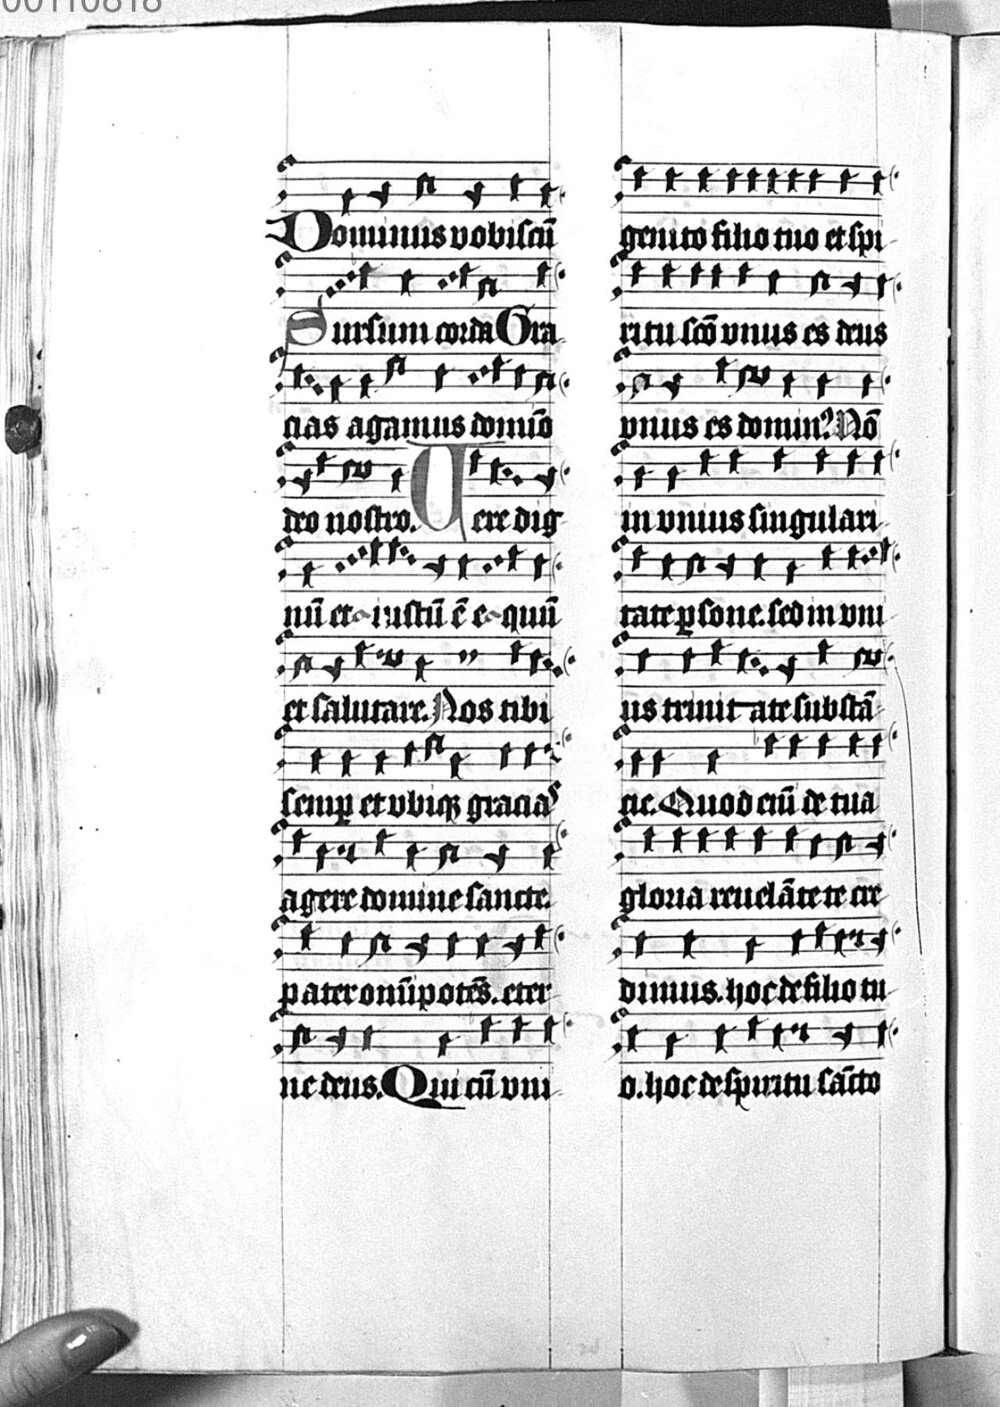 00110818
Dominus vobiscū
Sursum corda Gra
cias agamus domīo
deo nostro. Vere dig
nū et iustū ē equū
et salutare. Nos tibi
semꝑ et vbiqꝫ gracias
agere domine sancte.
pater omīpotēs. eter
ne deus. Qui cū vni
genito filio tuo et spi
ritu scō vnus es deus
vnus es domin9 Nō
in vnius singulari
tate ꝑsone. sed in vni
us trinitate substā
cie. Quod eiū de tua
gloria reuelāte te cre
dimus. hoc de filio tu
o. hoc de spiritu sācto